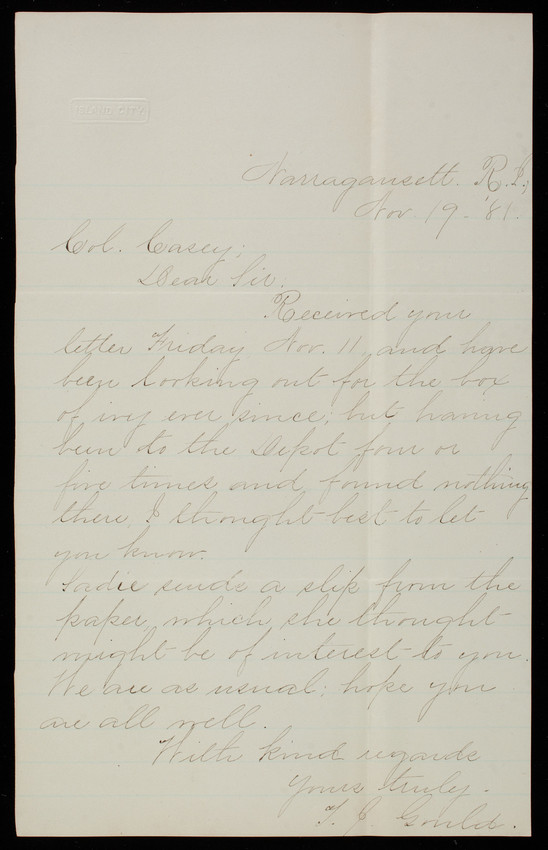 ISLAND CITY
Narragansett. R.I.,
Nov. 19. '81.
Col. Casey;
Dear Sir:
Received your
letter Friday Nov. 11, and have
been looking out for the box
of ivy ever since; but having
been to the Depot four or
five times, and found nothing
there, I thought best to let
you know.
Sadie sends a slip from the
paper, which she thought
might be of interest to you.
We are as usual; hope you
are all well.
With kind regards
Yours truly.
T. J. Gould.